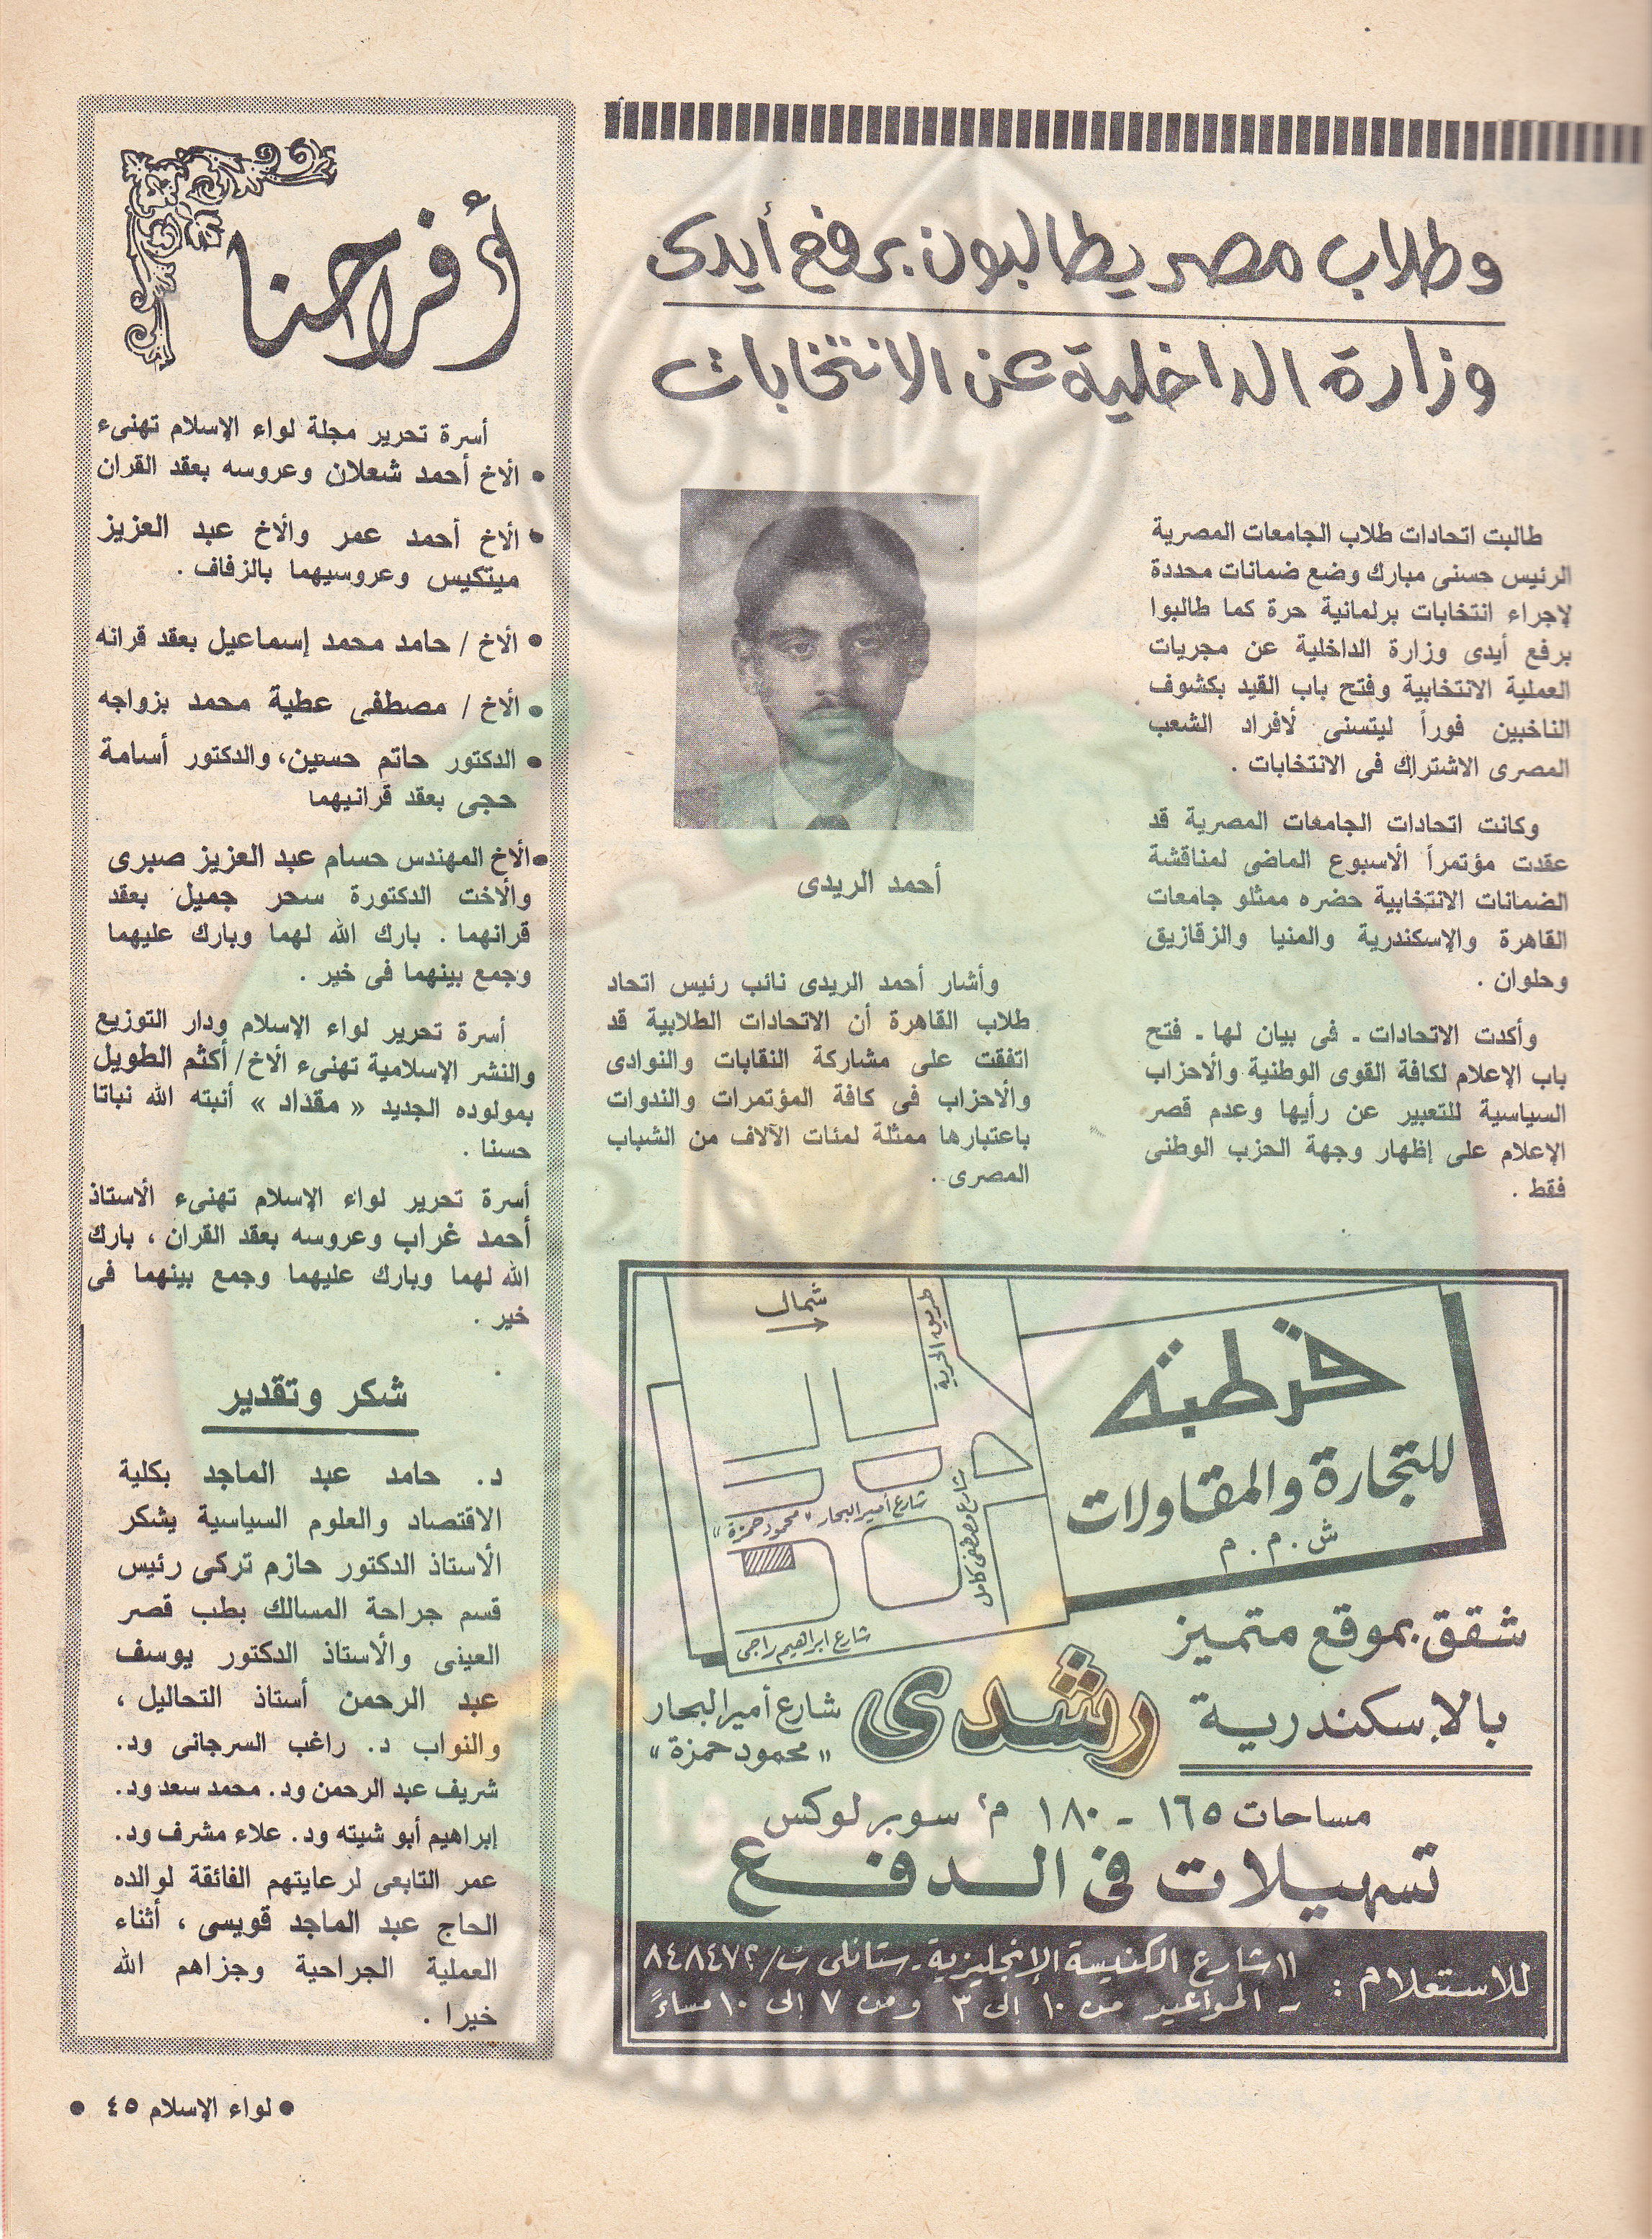 وطلاب مصر يطالبون برفع أيدى
وزارة الداخلية عن الانتخابات
طالبت اتحادات طلاب الجامعات المصرية
الرئيس حسنى مبارك وضع ضمانات محددة
لإجراء انتخابات برلمانية حرة كما طالبوا
برفع أيدى وزارة الداخلية عن مجريات
العملية الانتخابية وفتح باب القيد بكشوف
الناخبين فوراً ليتسنى لأفراد الشعب
المصرى الاشتراك فى الانتخابات .
وكانت اتحادات الجامعات المصرية قد
عقدت مؤتمراً الأسبوع الماضى لمناقشة
الضمانات الانتخابية حضره ممثلو جامعات
القاهرة والإسكندرية والمنيا والزقازيق
وحلوان .
وأكدت الاتحادات ـ فى بيان لها ـ فتح
باب الإعلام لكافة القوى الوطنية والأحزاب
السياسية للتعبير عن رأيها وعدم قصر
الإعلام على إظهار وجهة الحزب الوطنى
فقط .
أحمد الريدى
وأشار أحمد الريدى نائب رئيس اتحاد
طلاب القاهرة أن الاتحادات الطلابية قد
اتفقت على مشاركة النقابات والنوادى
والأحزاب فى كافة المؤتمرات والندوات
باعتبارها ممثلة لمئات الآلاف من الشباب
المصرى .
قرطبة
للتجارة والمقاولات
ش . م . م
شمال
طريق الحرية
شارع أمير البحار "محمود حمزة"
شارع مصطفى كامل
شارع ابراهيم راجى
شقق بموقع متميز
بالإسكندرية رشدى شارع أمير البحار
"محمود حمزة"
مساحات ١٦٥ - ١٨٠ م٢ سوبر لوكس
تسهيلات فى الدفع
للاستعلام : ١١ شارع الكنيسة الإنجليزية - ستانلى ت/٨٤٨٤٧٢
- المواعيد من ١٠ إلى ٣ ومن ٧ إلى ١٠ مساءً
أفراحنا
أسرة تحرير مجلة لواء الإسلام تهنىء
• الأخ أحمد شعلان وعروسه بعقد القران
• الأخ أحمد عمر والأخ عبد العزيز
ميتكيس وعروسيهما بالزفاف .
• الأخ / حامد محمد إسماعيل بعقد قرانه
• الأخ / مصطفى عطية محمد بزواجه
• الدكتور حاتم حسين، والدكتور أسامة
حجى بعقد قرانيهما
• الأخ المهندس حسام عبد العزيز صبرى
والأخت الدكتورة سحر جميل بعقد
قرانهما . بارك الله لهما وبارك عليهما
وجمع بينهما فى خير .
أسرة تحرير لواء الإسلام ودار التوزيع
والنشر الإسلامية تهنىء الأخ/ أكثم الطويل
بمولوده الجديد « مقداد » أنبته الله نباتا
حسنا .
أسرة تحرير لواء الإسلام تهنىء الأستاذ
أحمد غراب وعروسه بعقد القران ، بارك
الله لهما وبارك عليهما وجمع بينهما فى
خير .
شكر وتقدير
د. حامد عبد الماجد بكلية
الاقتصاد والعلوم السياسية يشكر
الأستاذ الدكتور حازم تركى رئيس
قسم جراحة المسالك بطب قصر
العينى والأستاذ الدكتور يوسف
عبد الرحمن أستاذ التحاليل ،
والنواب د. راغب السرجانى ود.
شريف عبد الرحمن ود. محمد سعد ود.
إبراهيم أبو شيته ود. علاء مشرف ود.
عمر التابعى لرعايتهم الفائقة لوالده
الحاج عبد الماجد قويسى ، أثناء
العملية الجراحية وجزاهم الله
خيرا .
• لواء الإسلام ٤٥ •